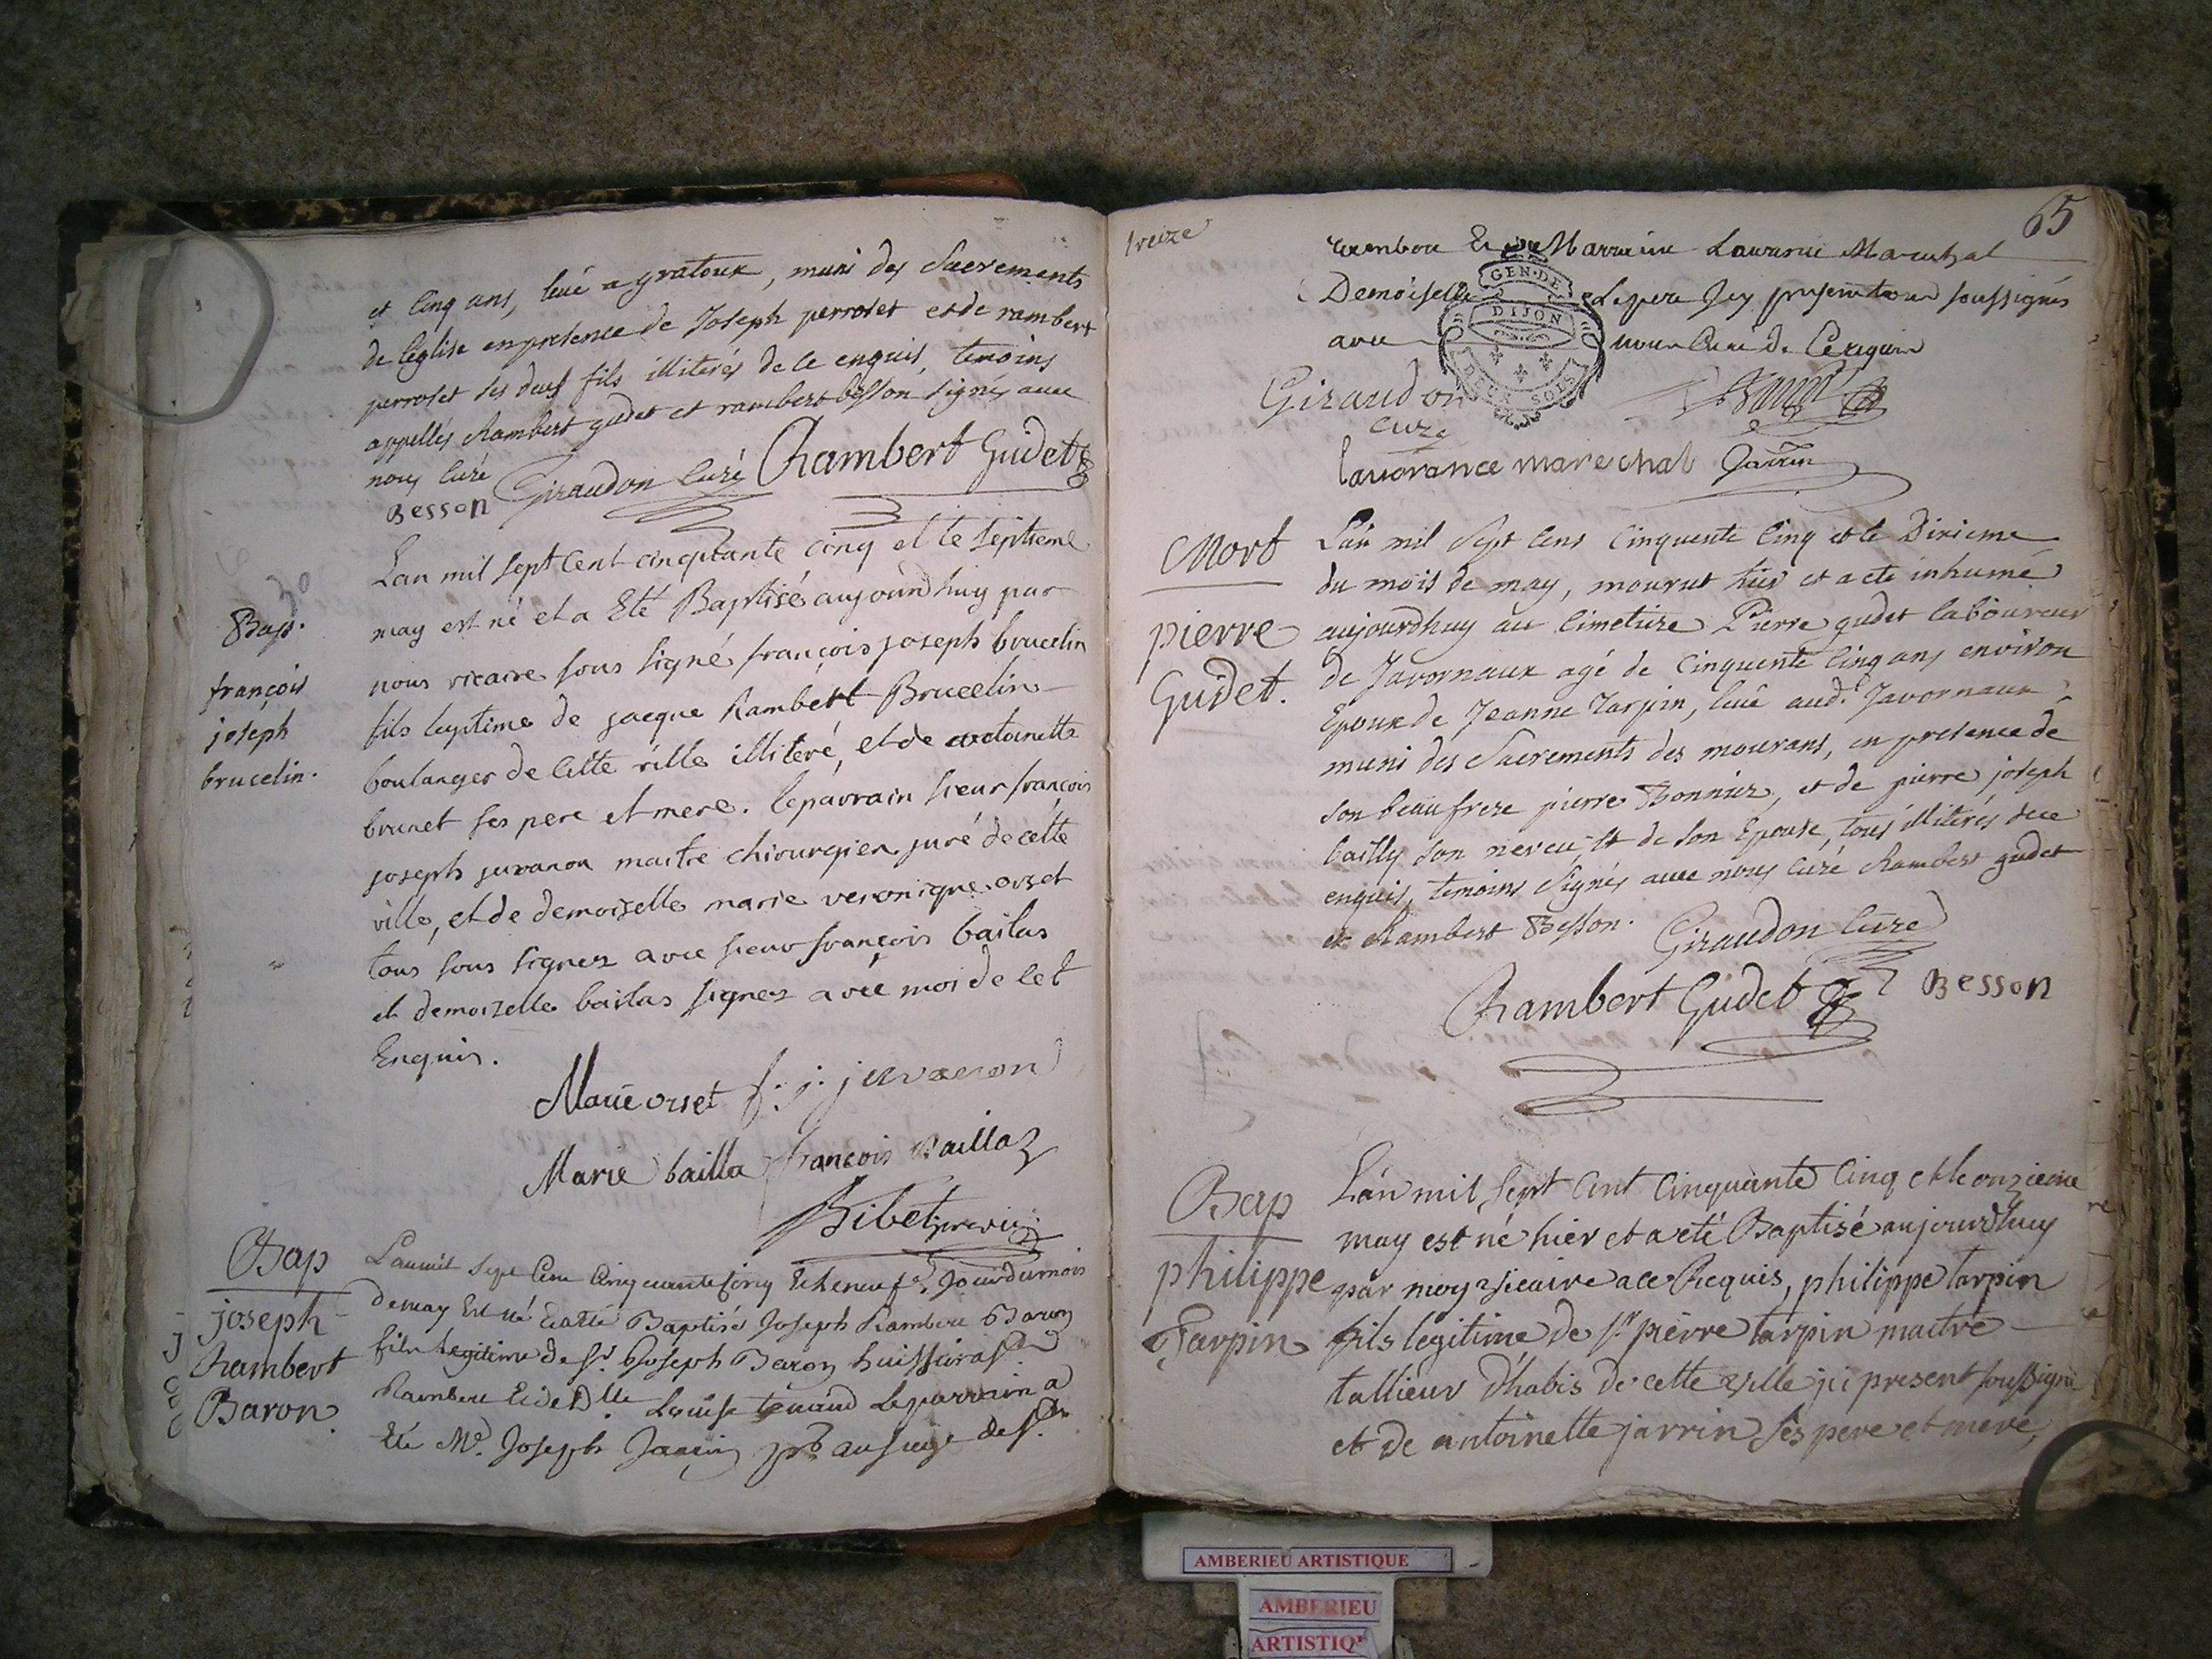 et cinq ans, levé a gratoux, muni des Sacrements
de l'eglise en presence de Joseph perroset et de rambert
perroset ses deus fils illiterés de ce enquis, temoins
appellés Rambert gudet et rambert besson signés avec
nous curé
Besson Giraudon Curé Rambert Gudet
Bap.
françois
joseph
brucelin.
Lan mil sept cent cinquante cinq et le septieme
may est né et a Eté Baptisé aujourd'huy par
nous vicaire sous signé françois joseph brucelin
fils legitime de jacque Rambert Brucelin
boulanger de cette ville illiteré, et de antoinette
brunet ses pere et mere. le parrain sieur françois
joseph juvanon maitre chirurgien juré de cette
ville, et de demoiselle marie veronique orset
tous sous signez avec sieur françois bailas
et demoizelle bailas signez avec moi de cet
Enquis.
Marie orset f. j. juvanon
Marie bailla françois Baillaz
Ribet
Bap
joseph
Rambert
Baron.
Lanmil Sept Cent Cinquante cinq Et le neufe. Jour du mois
de may Est né Et a Eté Baptisé Joseph Rambert Baron
fils Legitime de Sr. Joseph Baron huissier a St.
Rambert Et de Dlle Louise tenand Le parrain a
Eté Me. Joseph Jarrin au siege de St.
treize
65
Rambert Et Marraine Laurance Marechal
Demoiselle Le pere Icy present tous soussignés
avec nous Curé de Ce requis
GEN. DE
DIJON
DEUX SOLS
Giraudon
Curé
lauorance marechal Jarrin
Mort
pierre
Gudet.
L'an mil Sept cens Cinquante Cinq et le Dixieme
du mois de may, mourut hier et a eté inhumé
aujourdhuy au Cimetiere Pierre gudet laboureur
de Javornaux agé de Cinquante Cinq ans environ
Epoux de Jeanne Tarpin, levé aud. Javornaux,
muni des Sacrements des mourans, en presence de
son beau frere pierre Bonnier, et de pierre joseph
bailly son neveu, et de son Epouse, tous illiterés de ce
enquis, temoins Signés avec nous curé Rambert gudet
et Rambert Besson. Giraudon Curé
Rambert Gudet Besson
Bap
philippe
Tarpin
L'an mil Sept Cent Cinquante Cinq et le onzieme
may est né hier et a eté Baptisé aujourd'huy
par moy vicaire a ce Requis, philippe tarpin
fils legitime de Sr. pierre tarpin maitre
tallieur d'habis de cette ville ici present soussigné
et de antoinette jarrin ses pere et mere,
AMBERIEU ARTISTIQUE
AMBERIEU
ARTISTIQ